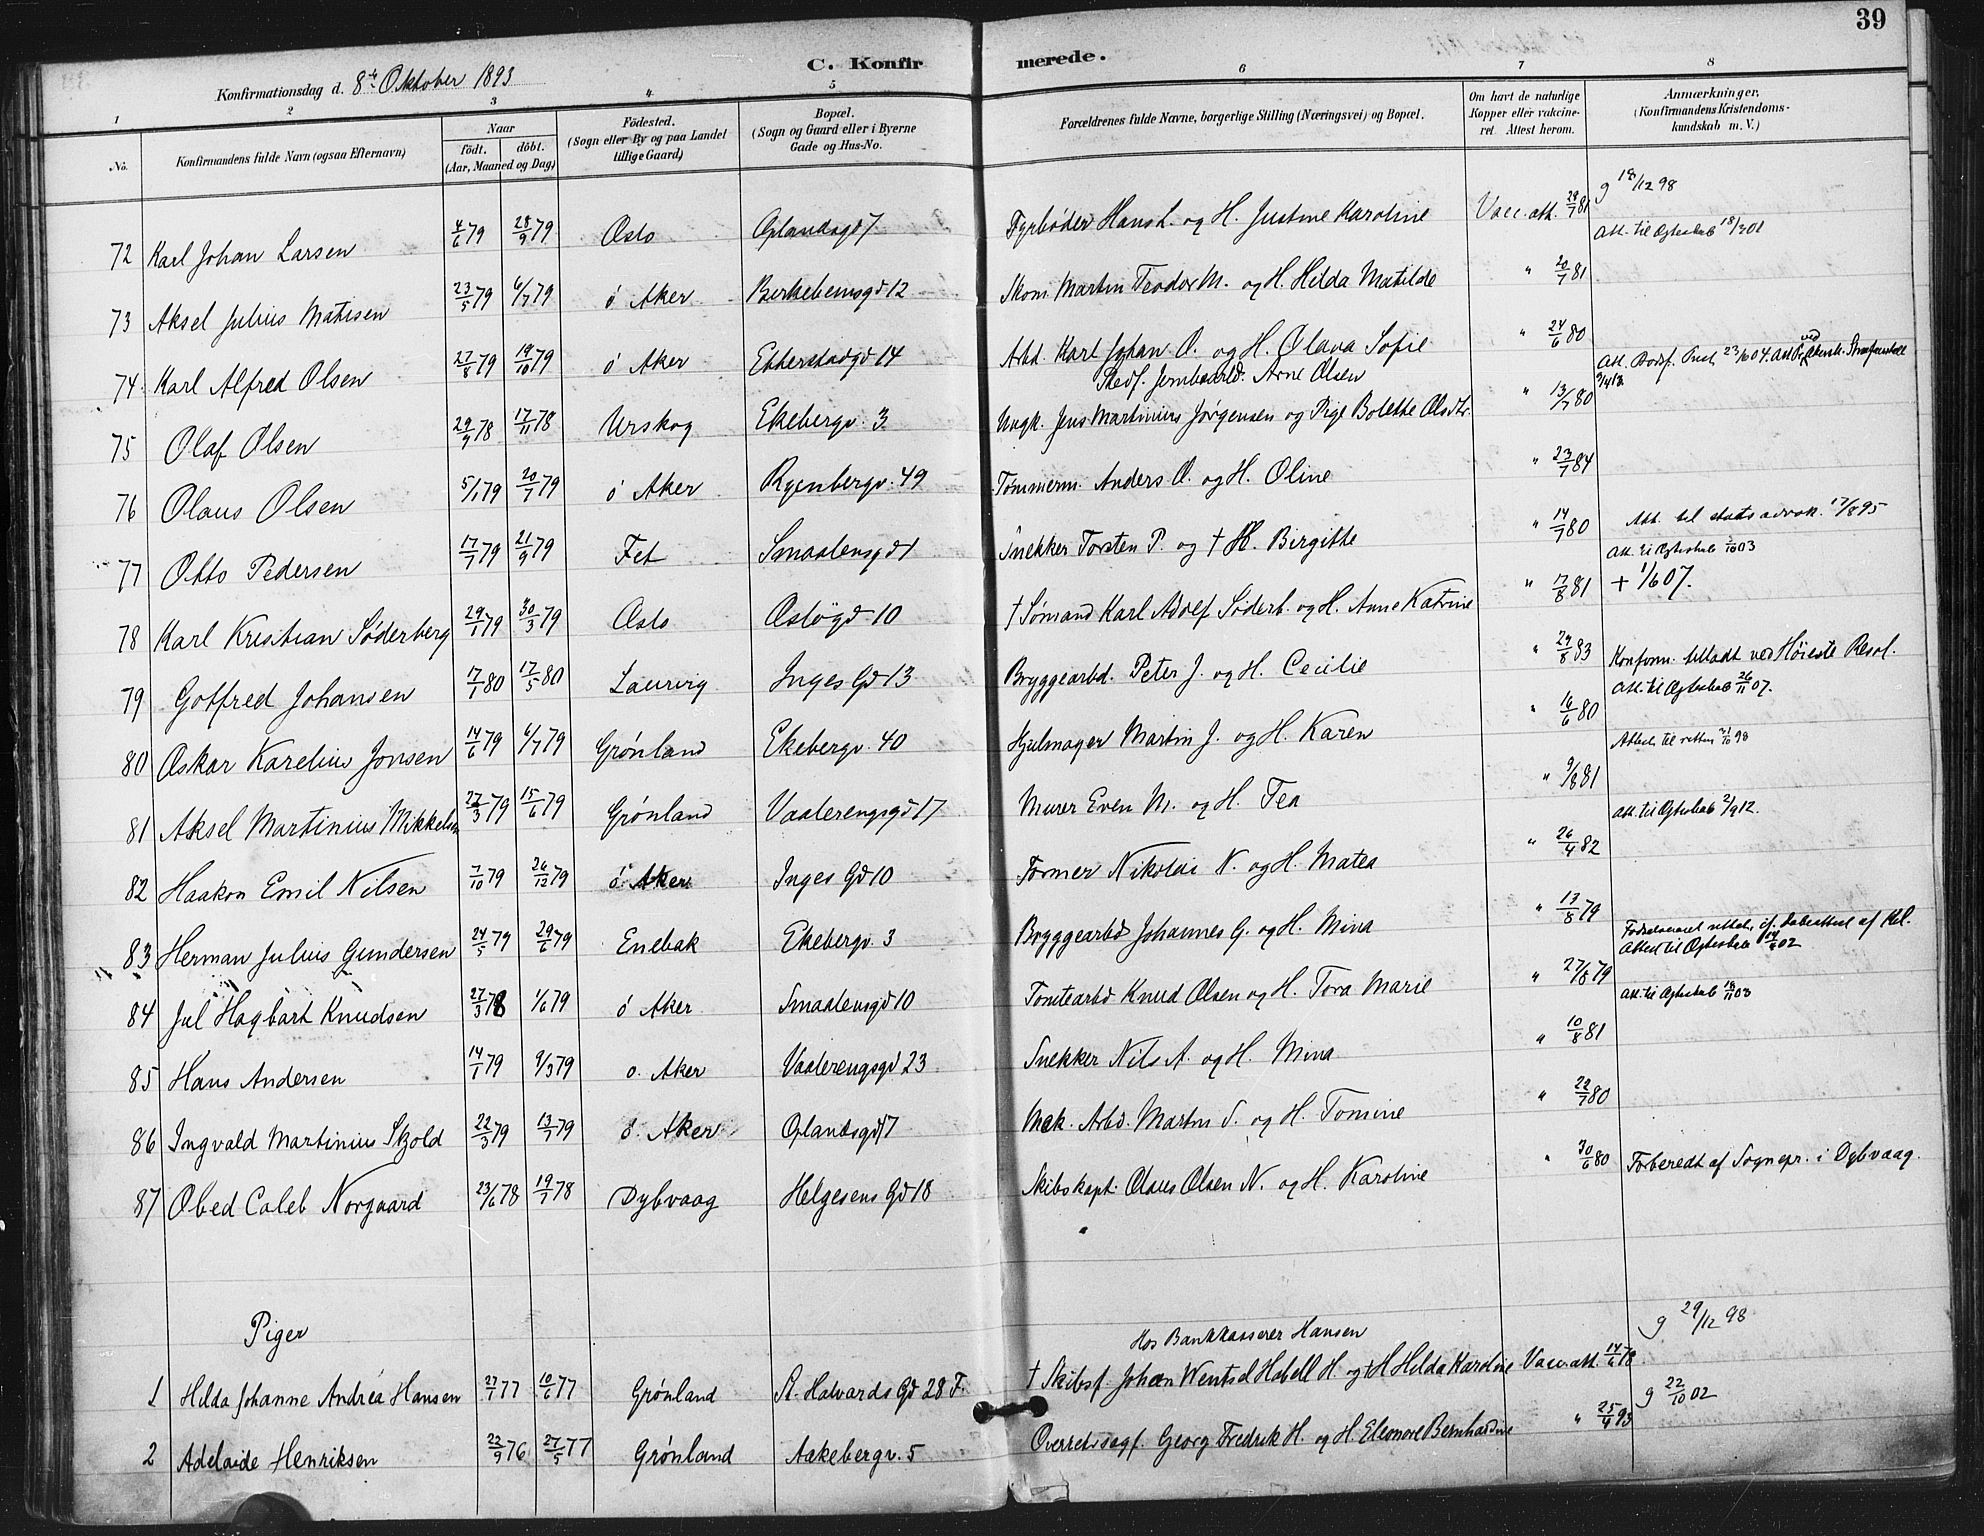 39
Konfirmationsdag d. 8de Oktober 1893
C. Konfirmerede.
1 2 3 4 5 6 7 8
No. Konfirmandens fulde Navn (ogsaa Efternavn) Naar født. døbt. (Aar, Maaned og Dag) Fødested. (Sogn eller By og paa Landet tillige Gaard) Bopæl. (Sogn og Gaard eller i Byerne Gade og Hus-No. Forældrenes fulde Navne, borgerlige Stilling (Næringsvei) og Bopæl. Om havt de naturlige Kopper eller vakcineret. Attest herom. Anmærkninger. (Konfirmandens Kristendomskundskab m. V.)
g 18/12 98
72 Karl Johan Larsen 4/6 79 28/9 79 Oslo Oplandsgd 7 Fyrbøder Hans L. og H. Justine Karoline Vacc. att. 29/7 81 Att. til Ægteskab 18/3 01
73 Aksel Julius Matisen 23/5 79 6/7 79 ö Aker Birkebeinsgd 12 Skom. Martin Teodor M. og H. Hilda Matilde " 20/7 81
74 Karl Alfred Olsen 27/8 79 19/10 79 ö Aker Etterstadgd 14 Arbd. Karl Johan O. og H. Olava Sofie " 24/6 80
Stedf. Jernbarbd. Arne Olsen
75 Olaf Olsen 29/9 78 17/11 78 Urskog Ekebergv. 3 Ungk. Jens Martinius Jørgensen og Pige Bolette Olsdtr. " 13/7 80
76 Olaus Olsen 5/1 79 20/7 79 ö Aker Ryenbergv. 49 Tømmerm. Anders O. og H. Oline " 23/7 84
77 Otto Pedersen 17/7 79 21/9 79 Fet Smaalensgd 1 Snekker Torsten P. og † H. Birgitte " 14/7 80 Att. til statsadvok. 17/8 95
Att. til Ægteskab 3/10 03
78 Karl Kristian Søderberg 29/1 79 30/3 79 Oslo Oslogd 10 † Sømand Karl Adolf Søderb. og H. Anne Katrine " 17/8 81 + 1/6 07.
79 Gotfred Johansen 17/1 80 17/5 80 Laurvig Inges Gd 13 Bryggearbd. Peter J. og H. Cecilie " 29/8 83 Konfirm. tilladt ved Høieste Resol.
Att. til Ægteskab 26/11 07.
80 Oskar Karelius Jonsen 14/6 79 6/7 79 Grønland Ekebergv. 40 Hjulmager Martin J. og H. Karen " 16/6 80
Attest til retten 21/10 98
81 Aksel Martinius Mikkelsen 27/3 79 15/6 79 Grønland Vaalerengsgd 17 Murer Even M. og H. Tea " 9/8 81
Att. til Ægteskab 2/9 12.
82 Haakon Emil Nilsen 7/10 79 26/12 79 ö Aker Inges Gd 10 Former Nikolai N. og H. Matea " 26/4 82
83 Herman Julius Gundersen 24/5 79 29/6 79 Enebak Ekebergv. 3 Bryggearbd Johannes G. og H. Mina " 13/8 79
Attest til Ægteskab 14/4 02
84 Jul Hagbart Knudsen 27/3 78 1/6 79 ö Aker Smaalensgd 10 Tomtearbd Knud Olsen og H. Tora Marie " 27/8 79 Att. til Ægteskab 18/11 03
85 Hans Andersen 14/1 79 9/3 79 ö. Aker Vaalerengsgd 23 Snekker Nils A. og H. Mina " 10/8 81
86 Ingvald Martinius Skjold 22/3 79 13/7 79 ö. Aker Oplandsgd 7 Mek. Arbd. Martin S. og H. Tomine " 22/7 80
87 Obed Caleb Norgaard 23/6 78 19/7 78 Dybvaag Helgesens Gd 18 Skibskapt. Olaus Olsen N. og H. Karoline " 30/6 80 Forberedt af Sognepr. i Dybvaag.
Piger
Hos Bankkasserer Hansen g 29/12 98
1 Hilda Johanne Andrea Hansen 27/1 77 10/6 77 Grønland St. Halvards Gd 28 F. † Skibsf. Johan Wentsel Habell H. og † H Hilda Karoline Vacc. att. 14/6 78
g 22/10 02
2 Adelaide Henriksen 22/9 76 27/5 77 Grønland Aakebergv. 5 Overretssagf. Georg Fredrik H. og H. Eleonore Bernhardine " 25/4 93